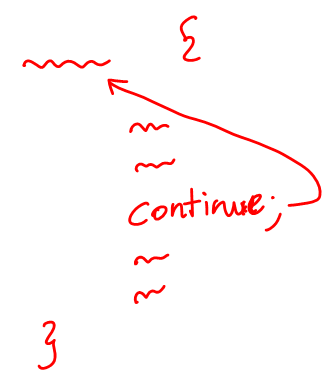 {
continue;
}